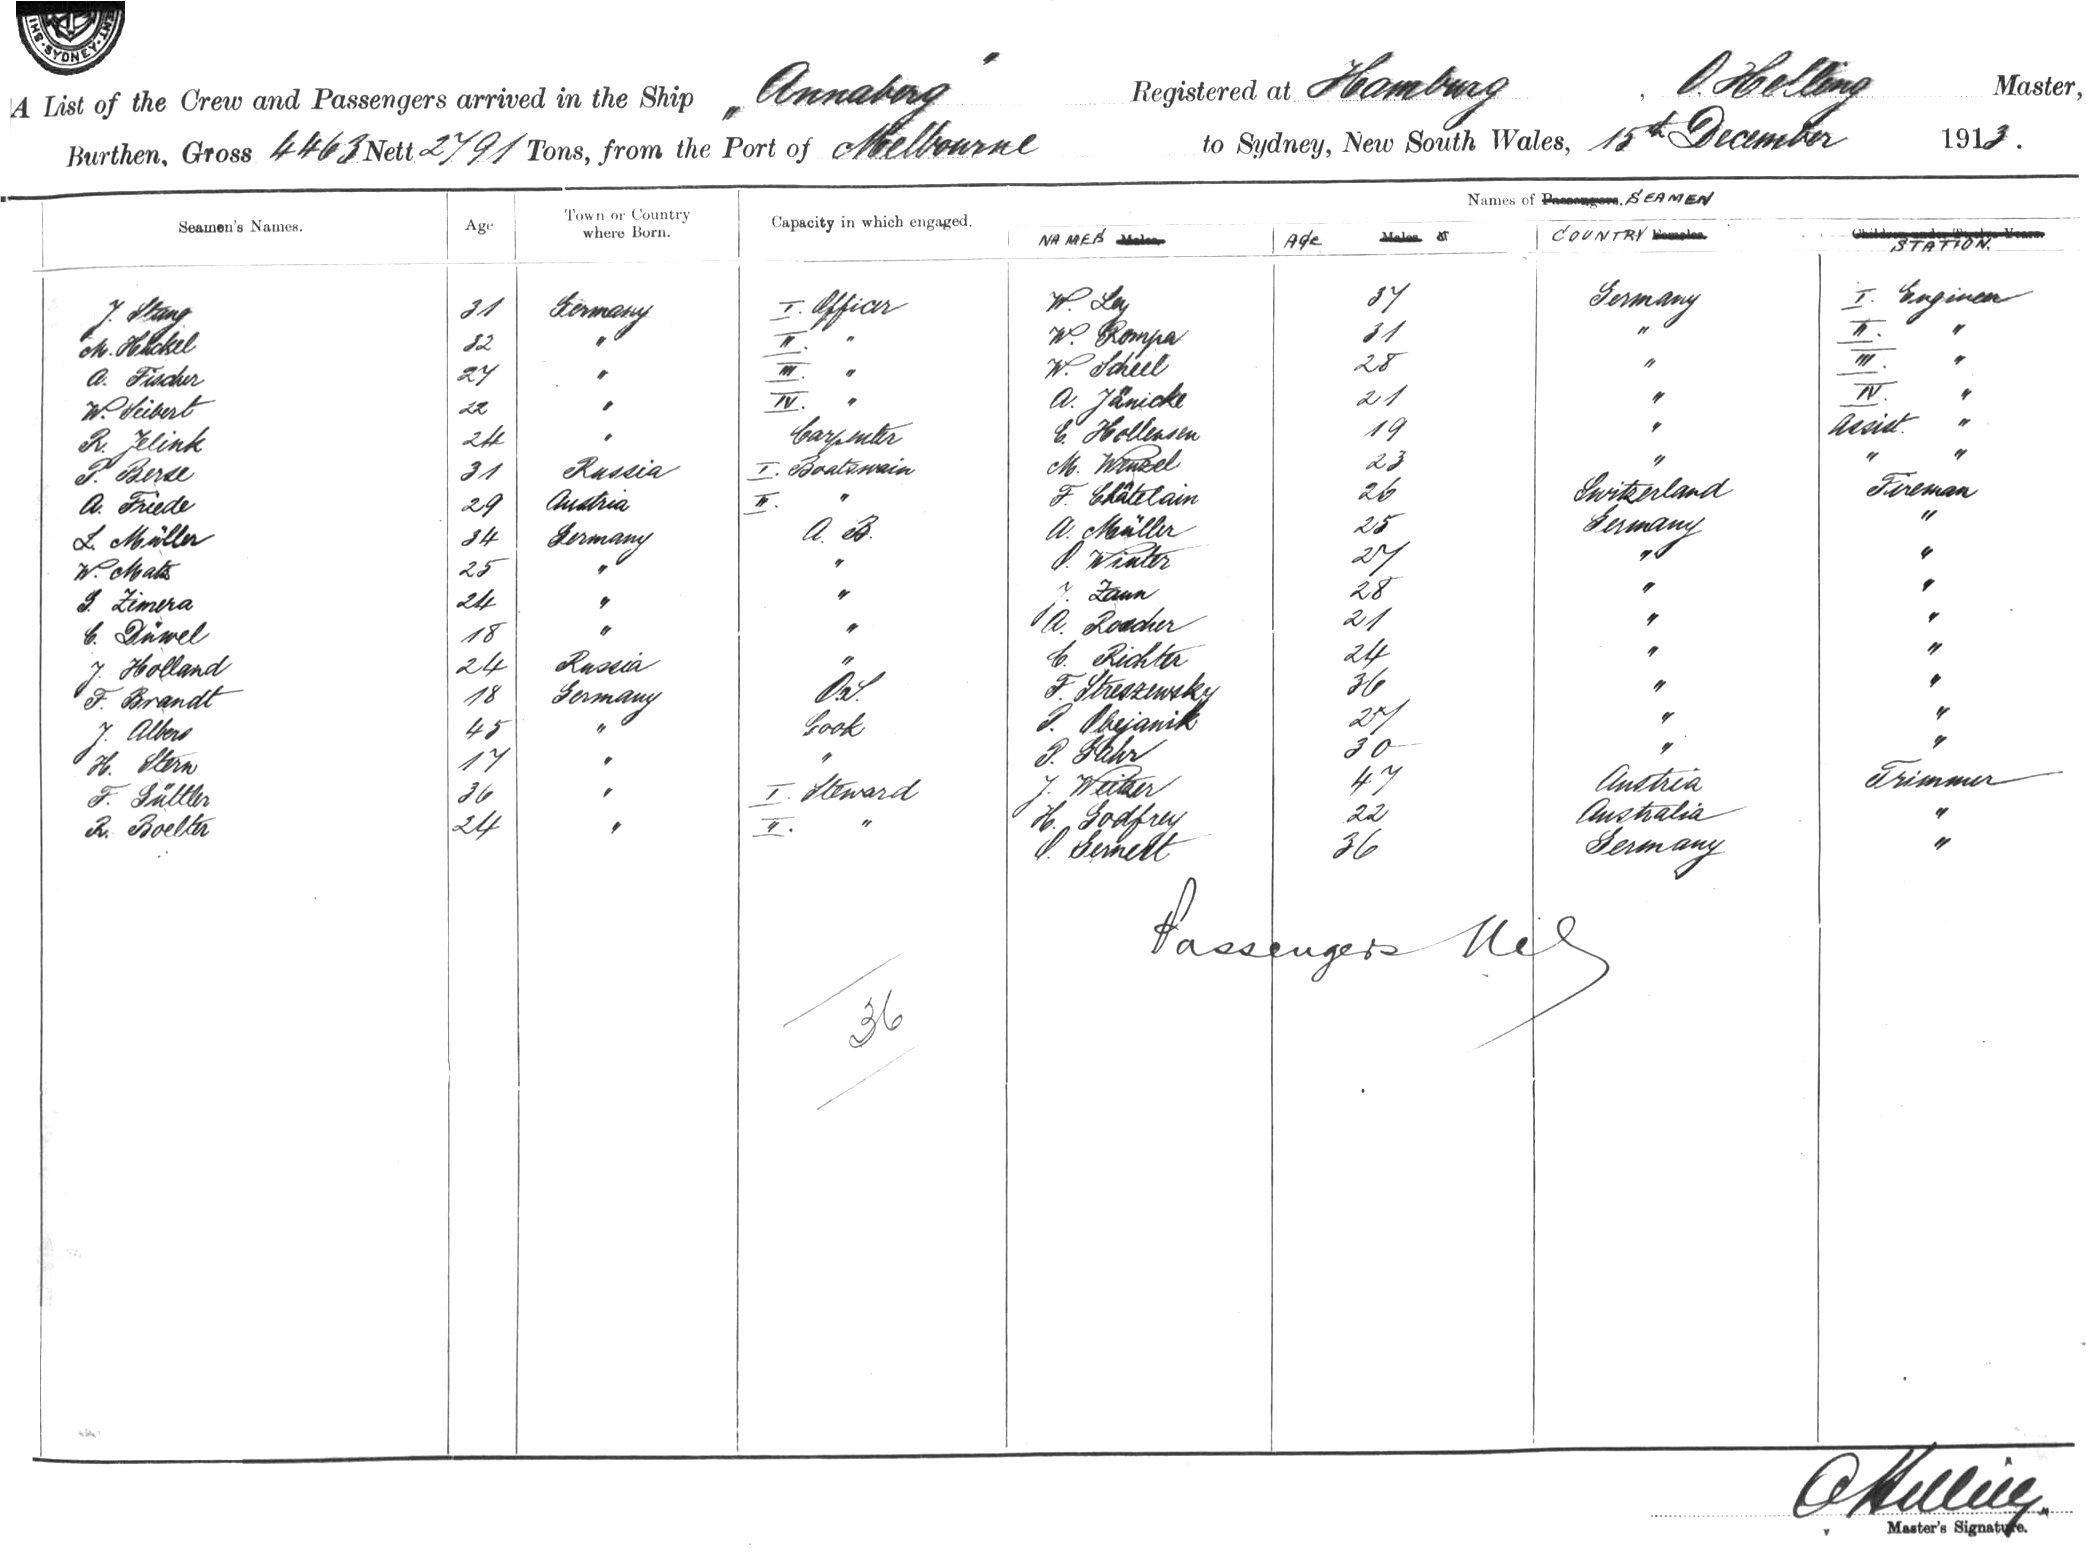 SYDNEY
A List of the Crew and Passengers arrived in the Ship „Annaberg" Registered at Hamburg, O. Helling Master,
Burthen, Gross 4463 Nett 2791 Tons, from the Port of Melbourne to Sydney, New South Wales, 15th December 1913.
Names of Passengers. SEAMEN
Seamen's Names. Age Town or Country where Born. Capacity in which engaged. NAMES Males. Age Males. COUNTRY Females. Children under Twelve Years. STATION.
J. Stang 31 Germany I. Officer W. Ley 37 Germany I. Engineer
M. Hückel 32 " II. " W. Rompa 31 " II. "
A. Fischer 27 " III. " W. Scheel 28 " III. "
W. Seibert 22 " IV. " A. Jänicke 21 " IV. "
R. Jelink 24 " Carpenter E. Hollensen 19 " Assist. "
P. Berse 31 Russia I. Boatswain M. Wenzel 23 " " "
A. Friede 29 Austria II. " F. Châtelain 26 Switzerland Fireman
L. Müller 34 Germany A. B. A. Müller 25 Germany "
W. Matz 25 " " O. Winter 27 " "
G. Zimera 24 " " J. Zaun 28 " "
C. Düwel 18 " " A. Roscher 21 " "
J. Holland 24 Russia " C. Richter 24 " "
F. Brandt 18 Germany O.S. F. Streszewsky 36 " "
J. Albers 45 " Cook P. Obejanik 27 " "
H. Stern 17 " " P. Gahr 30 " "
F. Güttler 36 " I. Steward J. Weitzer 47 Austria Trimmer
R. Boelter 24 " II. " H. Godfrey 22 Australia "
O. Gernert 36 Germany "
Passengers Nil
36
O Helling.
Master's Signature.